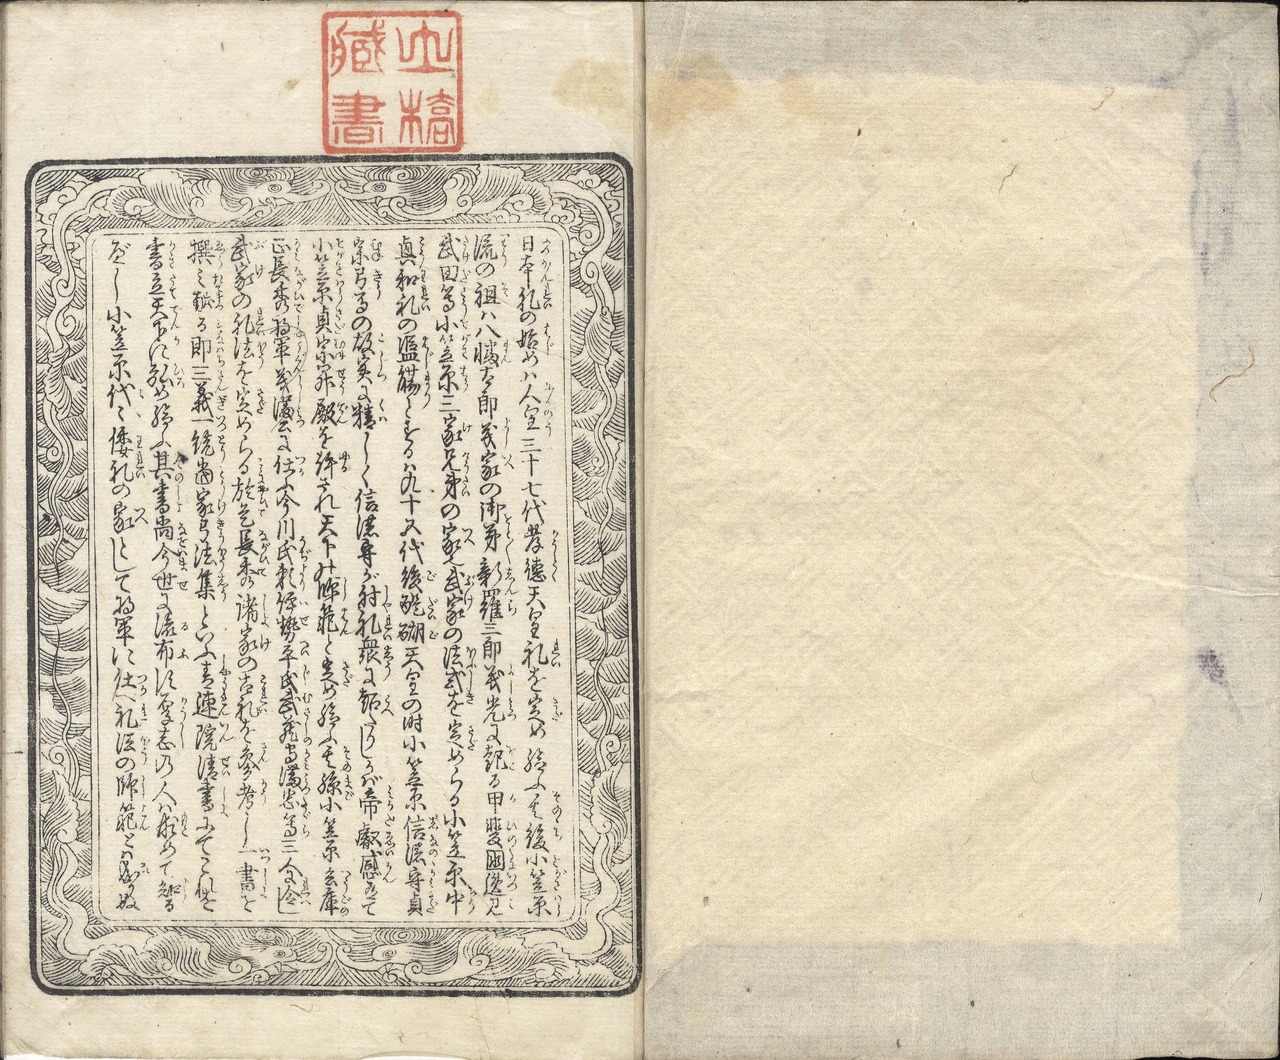 山橋
蔵書
日本礼の始めハ人皇三十七代孝徳天皇礼を定め給ふ其後小笠原
流の祖ハ八幡太郎義家の御弟新羅三郎義光に起る甲斐国逸見
武田等小笠原三家兄弟の家也武家の法式を定めらる小笠原中
貞和礼の濫觴とするハ九十五代後醍醐天皇の時小笠原信濃守貞
宗弓馬の故実に精しく信濃守が射礼衆に超たりしが帝叡感ありて
小笠原貞宗昇殿を許され天下の師範と定め給ふ其孫小笠原兵庫
正長秀将軍義満公に仕ふ今川氏頼伊勢平氏武蔵守満忠等三人に令し
武家の礼法を定めらる於是長秀諸家の古礼を参考し一書を
撰ミ献る即三義一統当家弓法集といふ青連院清書ありてこれを
書立天下に弘め給ふ其書尚今世に流布す厚志の人ハ求めて知る
べし小笠原代々倭礼の家として将軍に仕へ礼法の師範とハなりぬ